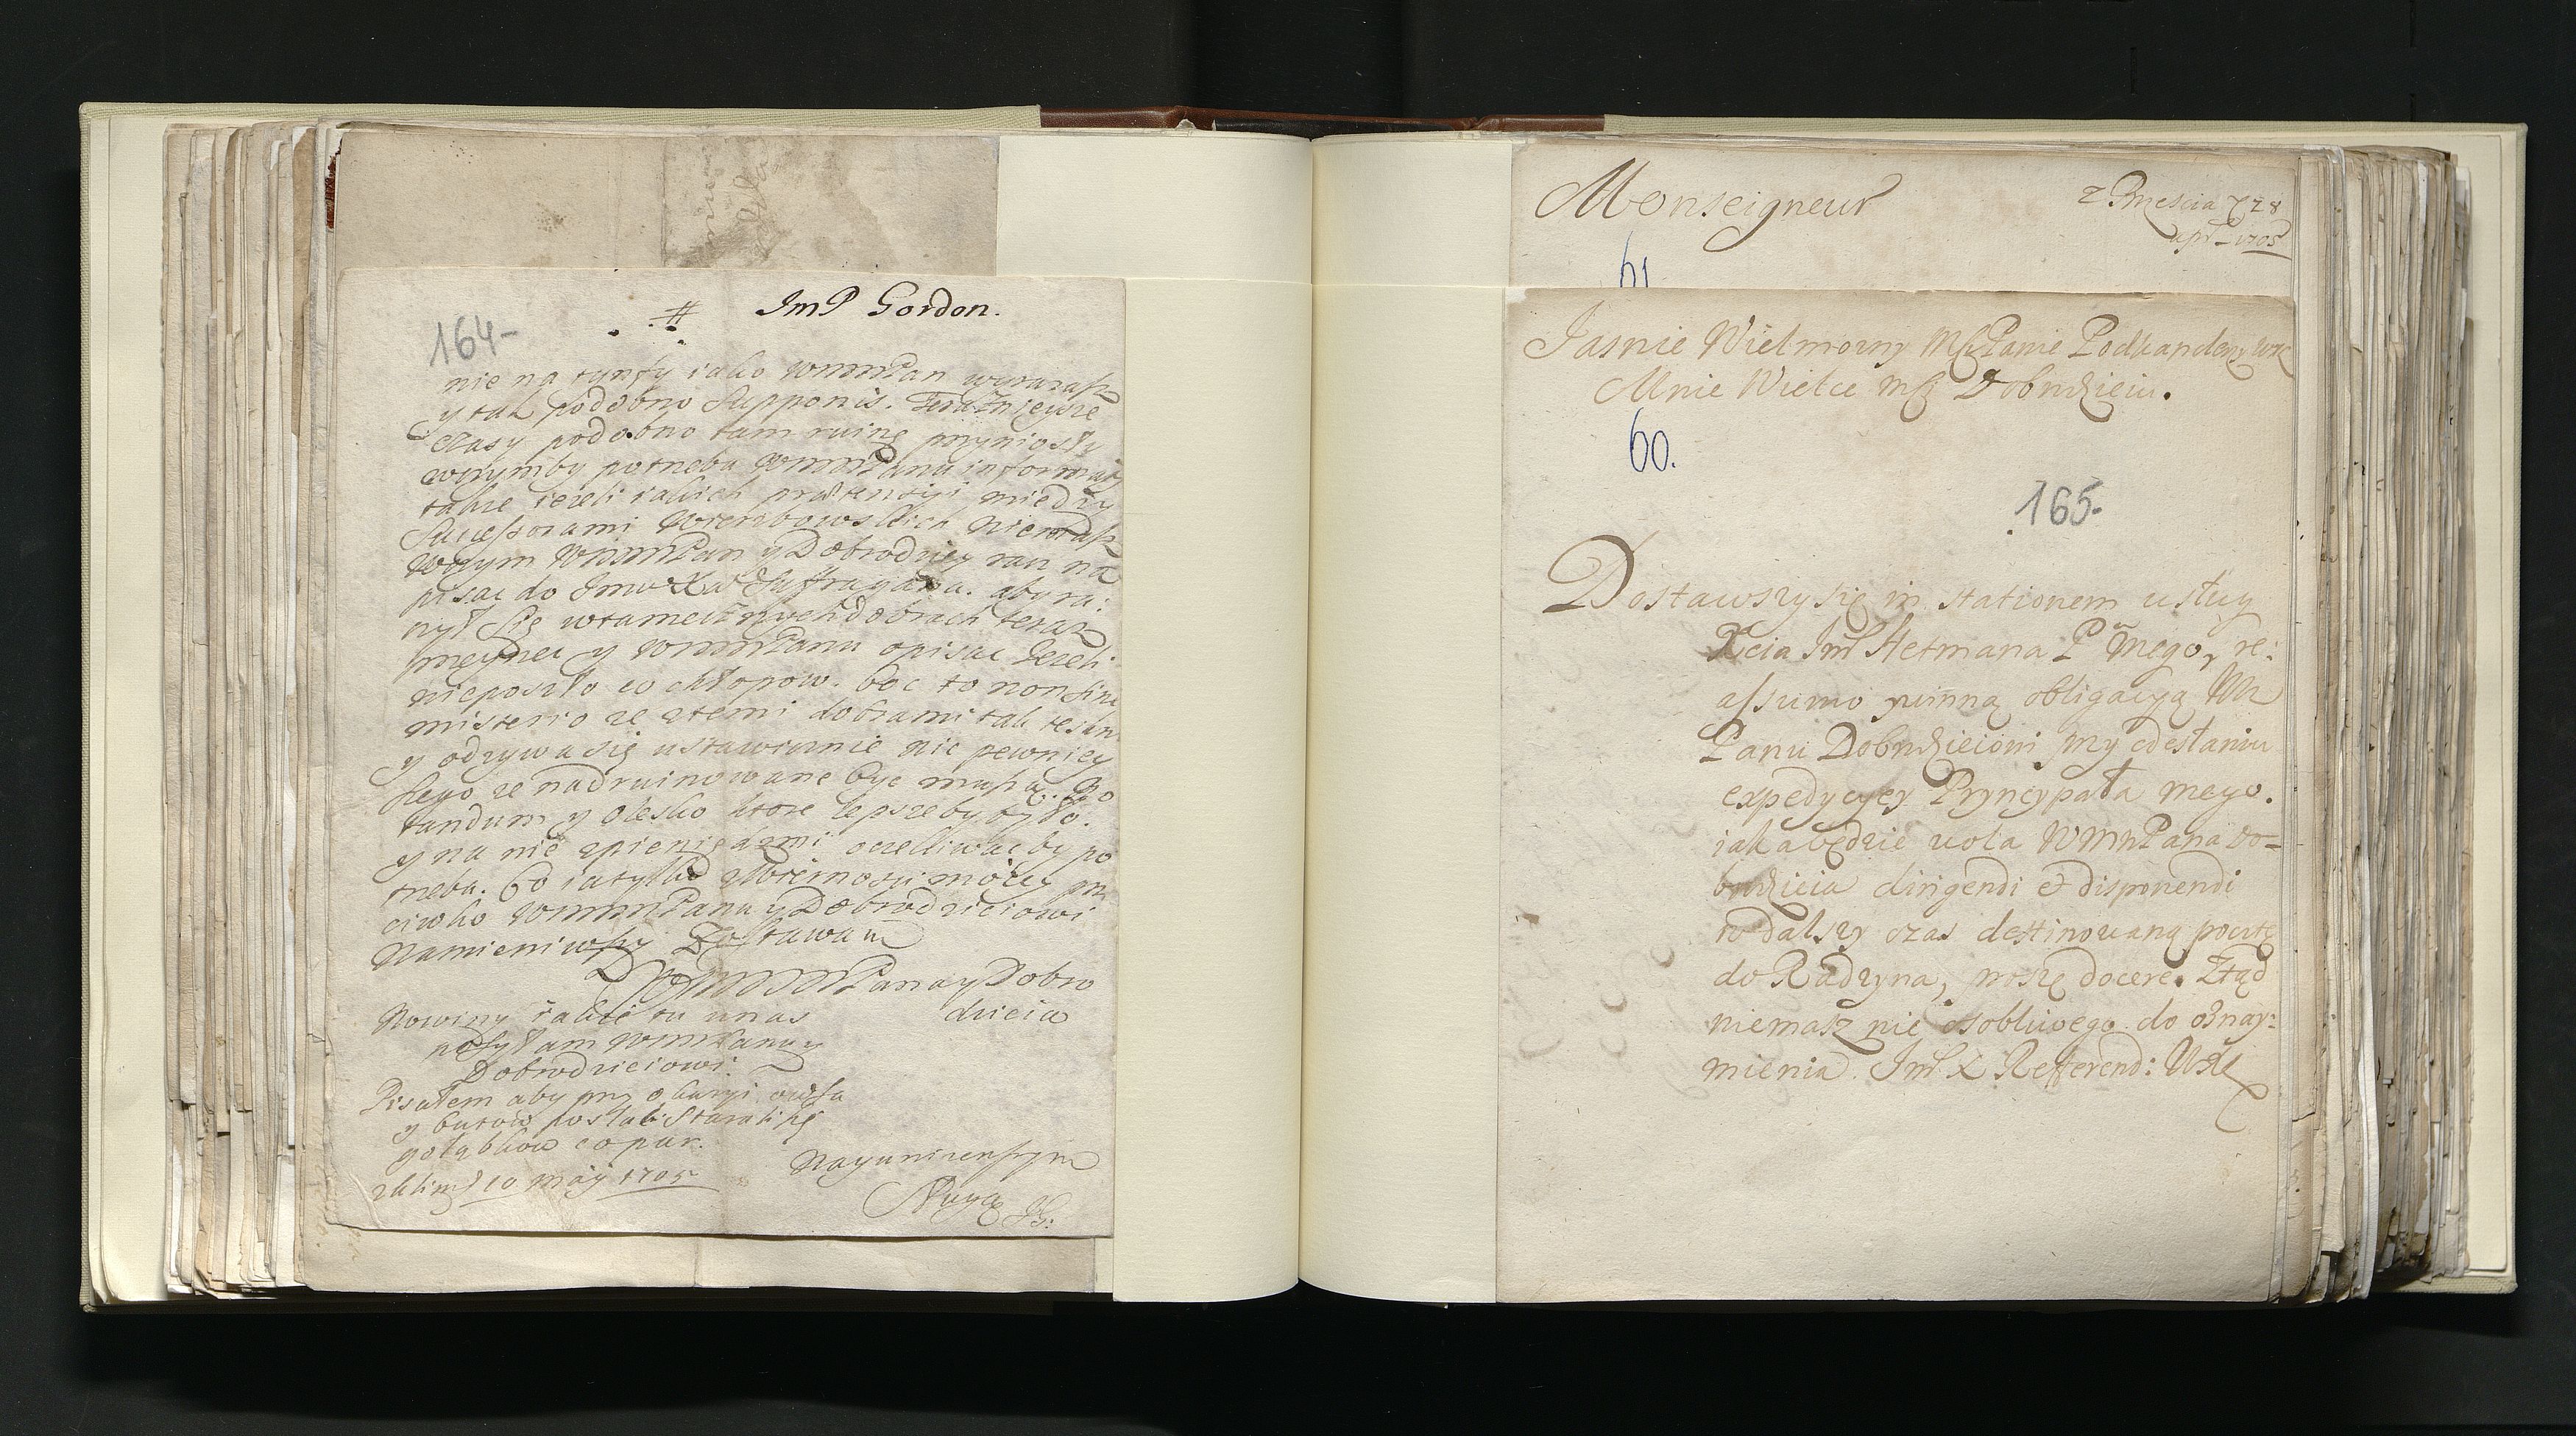 ImP Gordon.
#
164-
nie na tynfy iako WMMPan wyrazasz
y tak podobno supponis. Teraznieysze
czasy podobno tam ruinę przyniosły
w czymby potrzeba WMMPanu informacyi
takze iezeli iakich prætensyi miedzy
Successorami Wierzbowskich niemasz
w czym WMMPan y Dobrodziey racz na
pisac do Imci Xa Suffragana. aby ra:
czył się w tamecznych dobrach teraz
przeyrzec y WMMPanu opisac Jezeli
nieposzło co chłopow. boc to non sine
misterio ze ztemi dobrami tak
y odzywa się ustawicznie nic pewniey
szego ze nadruinowane byc muszą.
tandum y Olesko ktore lepsze by było.
y na nie zpieniędzmi oczekiwac by po
trzeba. Co ia tylko z Wiernosci moiey prze
ciwko WMMMPanu y Dobrodzieiowi
Namieniwszy Zostawam
WMMMPana y Dobro
dzieia
Nowiny iakie tu unas
posyłam WMMPanu y
Dobrodzieiowi.
Pisałem aby przy okazyi owsa
y butow posłali Starali się
gołąbkow co par.
10 may 1705
Nayunizenszym
Sługą JG:
Monseigneur
z Brzescia 28
apr - 1705
61
Jasnie Wielmozny Mśc Panie Podkanclerzy WXL
Mnie Wielce Mśc Dobrdzieiu.
60.
165-
Dostawszy się in stationem usług
Xcia Jmś Hetmana P mego, re:
assumo winną obligacyą Wm
Panu Dobrdzieiowi przy odesłaniu
expedycyey Pryncypała mego.
iaka będzie wola WMMPana Do=
brdzieia dirigendi et disponendi
w dalszy czas destinowaną pocztę
do Radzyna, proszę docere. Ztąd
niemasz nic osobliwego do oznay:
mienia. Jmś X Referend: WXL